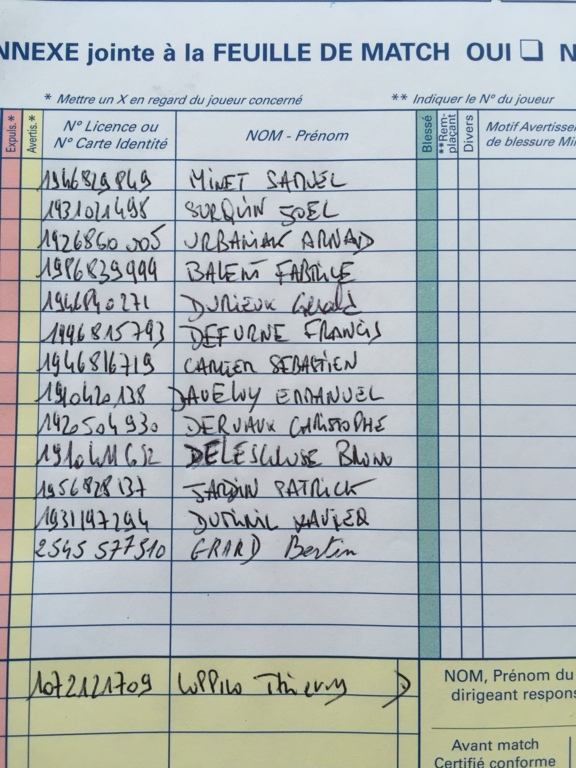 NNEXE jointe à la FEUILLE DE MATCH OUI ❑ N
* Mettre un X en regard du joueur concerné ** Indiquer le N° du joueur
Expuls.*
Avertis.*
N° Licence ou
N° Carte Identité
NOM - Prénom
Blessé
**Rem-
plaçant
Divers
Motif Avertisse
de blessure Mi
1946829849 MINET SAMUEL
1931021498 SURQUIN JOEL
1926860005 URBANIAK ARNAUD
1986839999 BALENT FABRICE
1946840271 DURIEUX Gérald
1946815793 DEFURNE FRANCIS
1946816719 CARLIER SEBASTIEN
1910420138 EMMANUEL
1920504930 DERVAUX CHRISTOPHE
DELESCLUSE BRUNO
1956828137 JARDIN PATRICK
1931197294 XAVIER
2545577510 GRARD Bertin
1072121709 Thierry
NOM, Prénom du
dirigeant respons
Avant match
Certifié conforme